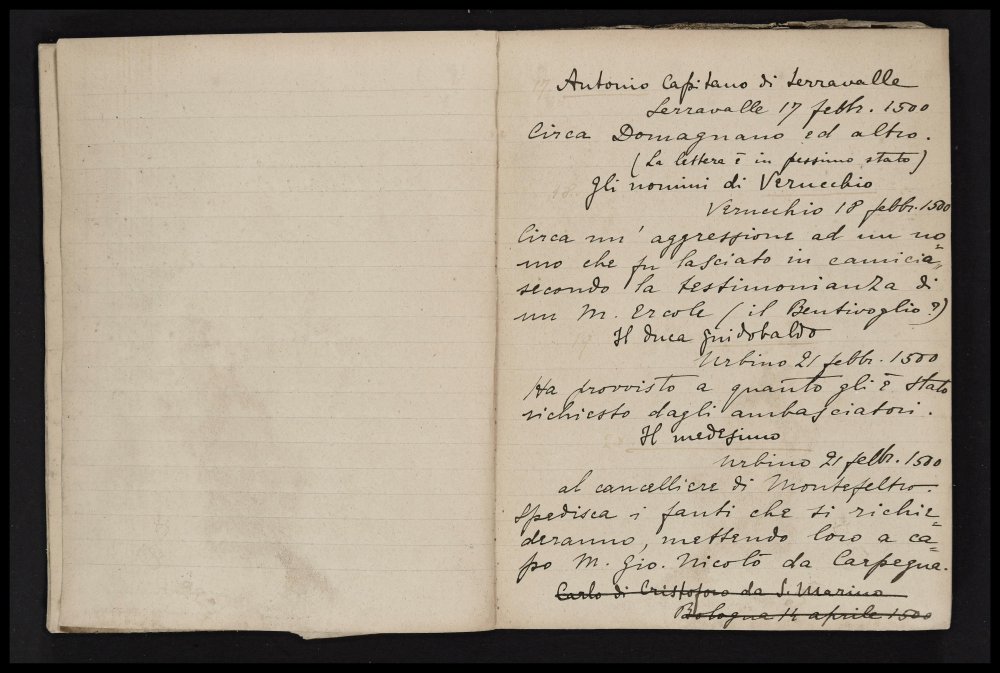 Antonio Capitano di Serravalle
Serravalle 17 febbr. 1500
Circa Domagnano ed altro.
(La lettera è in pessimo stato)
Gli uomini di Verucchio
Verucchio 18 febbr. 1500
Circa un' aggressione ad un uo=
mo che fu lasciato in camicia,
secondo la testimonianza di
un M. Ercole (il Bentivoglio?)
Il duca Guidobaldo
Urbino 21 febbr. 1500
Ha provvisto a quanto gli è stato
richiesto dagli ambasciatori.
Il medesimo
Urbino 21 febbr. 1500
al cancelliere di Montefeltro.
Spedisca i fanti che si richie=
deranno, mettendo loro a ca=
po M. Gio. Nicolò da Carpegna.
Carlo di Cristoforo da S. Marino
Bologna 14 aprile 1500